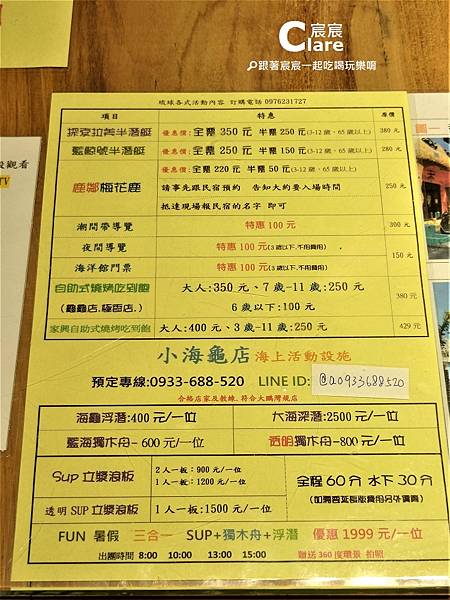 宸宸
Clare
跟著宸宸一起吃喝玩樂唷
琉球各式活動內容 訂購電話 0976231727
項目 特惠 原價
探索拉美半潛艇 優惠價:全票 350 元 半票 250 元(3-12 歲、65 歲以上) 380 元
藍鯨號半潛艇 優惠價:全票 250 元 半票 150 元(3-12 歲、65 歲以上) 280 元
鹿鄉梅花鹿 優惠價:全票 220 元 半票 50 元(3-12 歲、65 歲以上) 250 元
請事先跟民宿預約 告知大約要入場時間
抵達現場報民宿的名字 即可
潮間帶導覽 特惠 100 元 300 元
夜間導覽 特惠 100 元(3 歲以下.不用費用) 150 元
海洋館門票 特惠 100 元(3 歲以下.不用費用)
自助式燒烤吃到飽 大人:350 元、7 歲-11 歲:250 元 380 元
(龜龜店.極香店.) 6 歲以下:100 元
家興自助式燒烤吃到飽 大人:400 元、3 歲-11 歲:250 元 429 元
小海龜店 海上活動設施
預定專線:0933-688-520 LINE ID: @a0933688520
合格店家及教練.符合大鵬灣規店
海龜浮潛:400 元/一位 大海深潛:2500 元/一位
藍海獨木舟- 600 元/一位 透明獨木舟-800 元/一位
Sup 立槳浪板 2 人一板:900 元/一位
1 人一板:1200 元/一位
全程 60 分 水下 30 分
透明 SUP 立槳浪板 1 人一板:1500 元/一位
FUN 暑假 三合一 SUP+獨木舟+浮潛 優惠 1999 元/一位
出團時間 8:00 10:00 13:00 15:00 贈送 360 度環景 拍照
觀看
TV